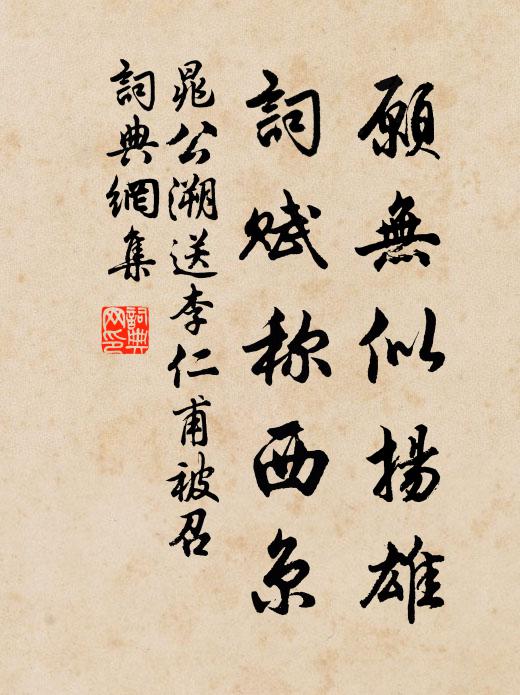 願無似揚雄
詞賦称西京
晁公溯送李仁甫被召
詞典網集
詞典网印